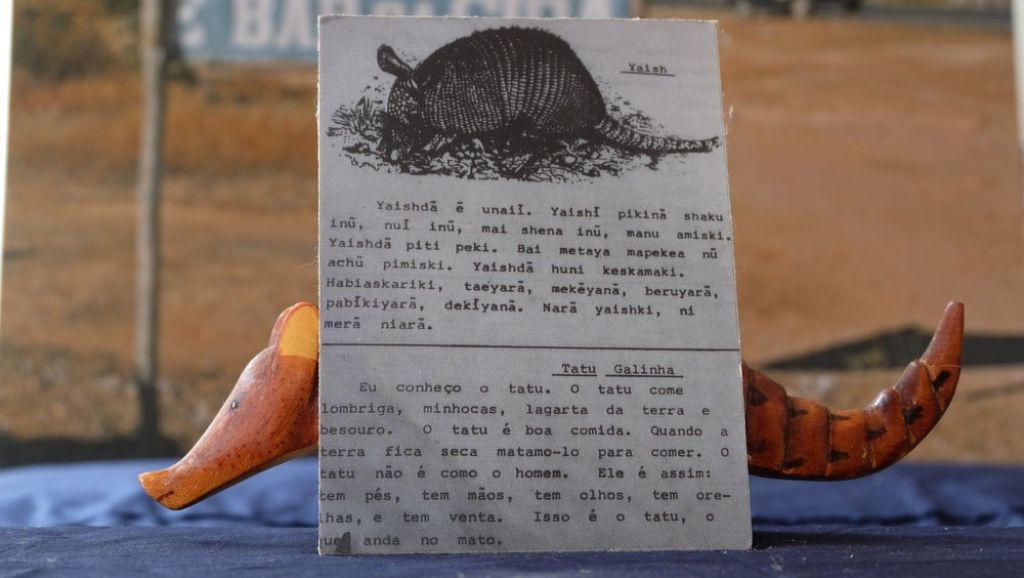 E BAR DA
Yaish
Yaishdã ẽ unaĩ. Yaishĩ pikinã shaku
inũ, nuĩ inũ, mai shena inũ, manu amiski.
Yaishdã piti peki. Bai metaya mapekea nũ
achũ pimiski. Yaishdã huni keskamaki.
Habiaskariki, taeyarã, mekẽyanã, beruyarã,
pabĩkiyarã, dekĩyanã. Narã yaishki, ni
merã niarã.
Tatu Galinha
Eu conheço o tatu. O tatu come
lombriga, minhocas, lagarta da terra e
besouro. O tatu é boa comida. Quando a
terra fica seca matamo-lo para comer. O
tatu não é como o homem. Ele é assim:
tem pés, tem mãos, tem olhos, tem ore-
lhas, e tem venta. Isso é o tatu, o
que anda no mato.